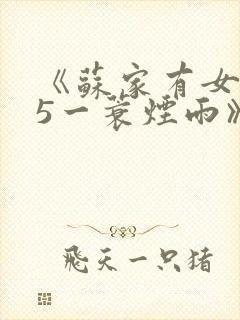 《蘇家有女
5一蓑煙雨》
飛天一只猪